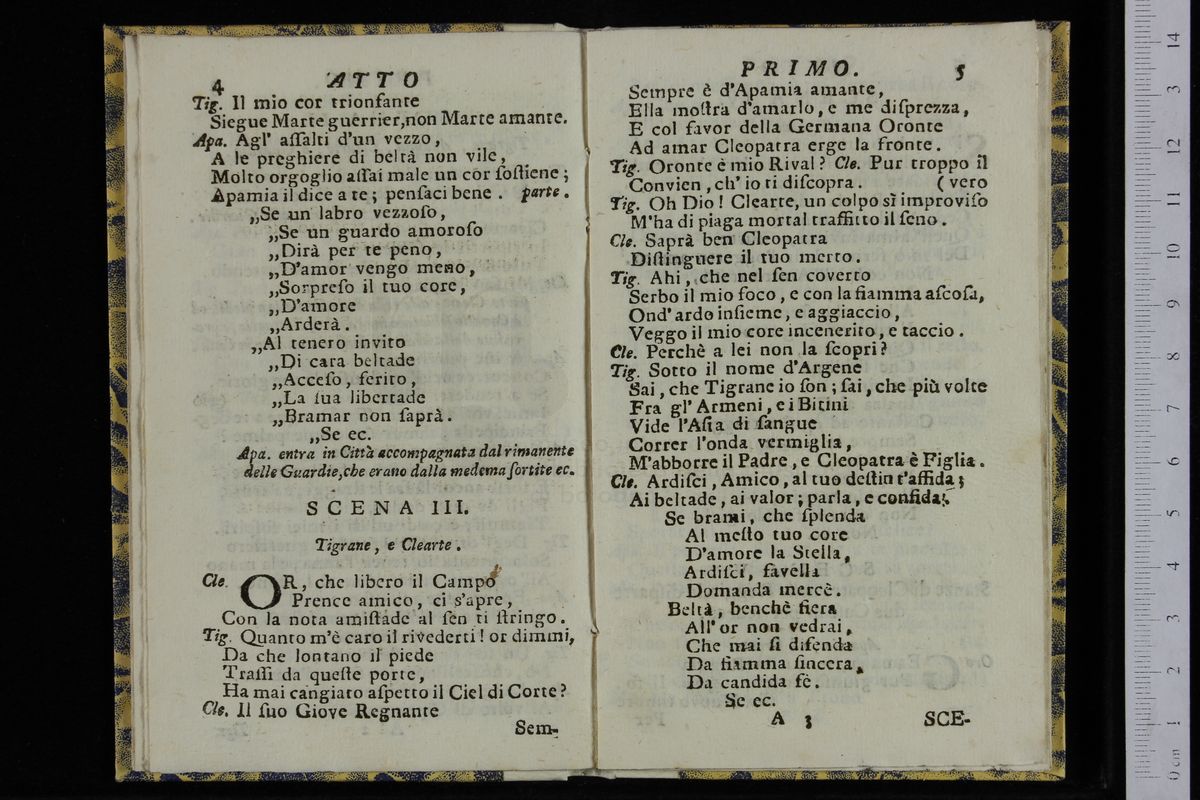 4 ATTO
Tig. Il mio cor trionfante
Siegue Marte guerrier, non Marte amante.
Apa. Agl' aſſalti d'un vezzo,
A le preghiere di beltà non vile,
Molto orgoglio aſſai male un cor ſoſtiene;
Apamia il dice a te; penſaci bene. parte.
„Se un labro vezzoſo,
„Se un guardo amoroſo
„Dirà per te peno,
„D'amor vengo meno,
„Sorpreſo il tuo core,
„D'amore
„Arderà.
„Al tenero invito
„Di cara beltade
„Acceſo, ferito,
„La ſua libertade
„Bramar non ſaprà.
„Se ec.
Apa. entra in Città accompagnata dal rimanente
delle Guardie, che erano dalla medema ſortite ec.
SCENA III.
Tigrane, e Clearte.
Cle. OR, che libero il Campo
Prence amico, ci s'apre,
Con la nota amiſtade al ſen ti ſtringo.
Tig. Quanto m'è caro il rivederti! or dimmi,
Da che lontano il piede
Traſſi da queſte porte,
Ha mai cangiato aſpetto il Ciel di Corte?
Cle. Il ſuo Giove Regnante
Sem-
PRIMO. 5
Sempre è d'Apamia amante,
Ella moſtra d'amarlo, e me diſprezza,
E col favor della Germana Oronte
Ad amar Cleopatra erge la fronte.
Tig. Oronte è mio Rival? Cle. Pur troppo il
Convien, ch' io ti diſcopra. (vero
Tig. Oh Dio! Clearte, un colpo sì improviſo
M'ha di piaga mortal traffitto il ſeno.
Cle. Saprà ben Cleopatra
Diſtinguere il tuo merto.
Tig. Ahi, che nel ſen coverto
Serbo il mio foco, e con la fiamma aſcoſa,
Ond' ardo inſieme, e aggiaccio,
Veggo il mio core incenerito, e taccio.
Cle. Perchè a lei non la ſcopri?
Tig. Sotto il nome d'Argene
Sai, che Tigrane io ſon; ſai, che più volte
Fra gl' Armeni, e i Bitini
Vide l'Aſia di ſangue
Correr l'onda vermiglia,
M'abborre il Padre, e Cleopatra è Figlia.
Cle. Ardiſci, Amico, al tuo deſtin t'affida;
Ai beltade, ai valor; parla, e confida;
Se brami, che ſplenda
Al meſto tuo core
D'amore la Stella,
Ardiſci, favella
Domanda mercè.
Beltà, benchè fiera
All' or non vedrai,
Che mai ſi difenda
Da fiamma ſincera,
Da candida fè.
Se ec.
A 3 SCE-